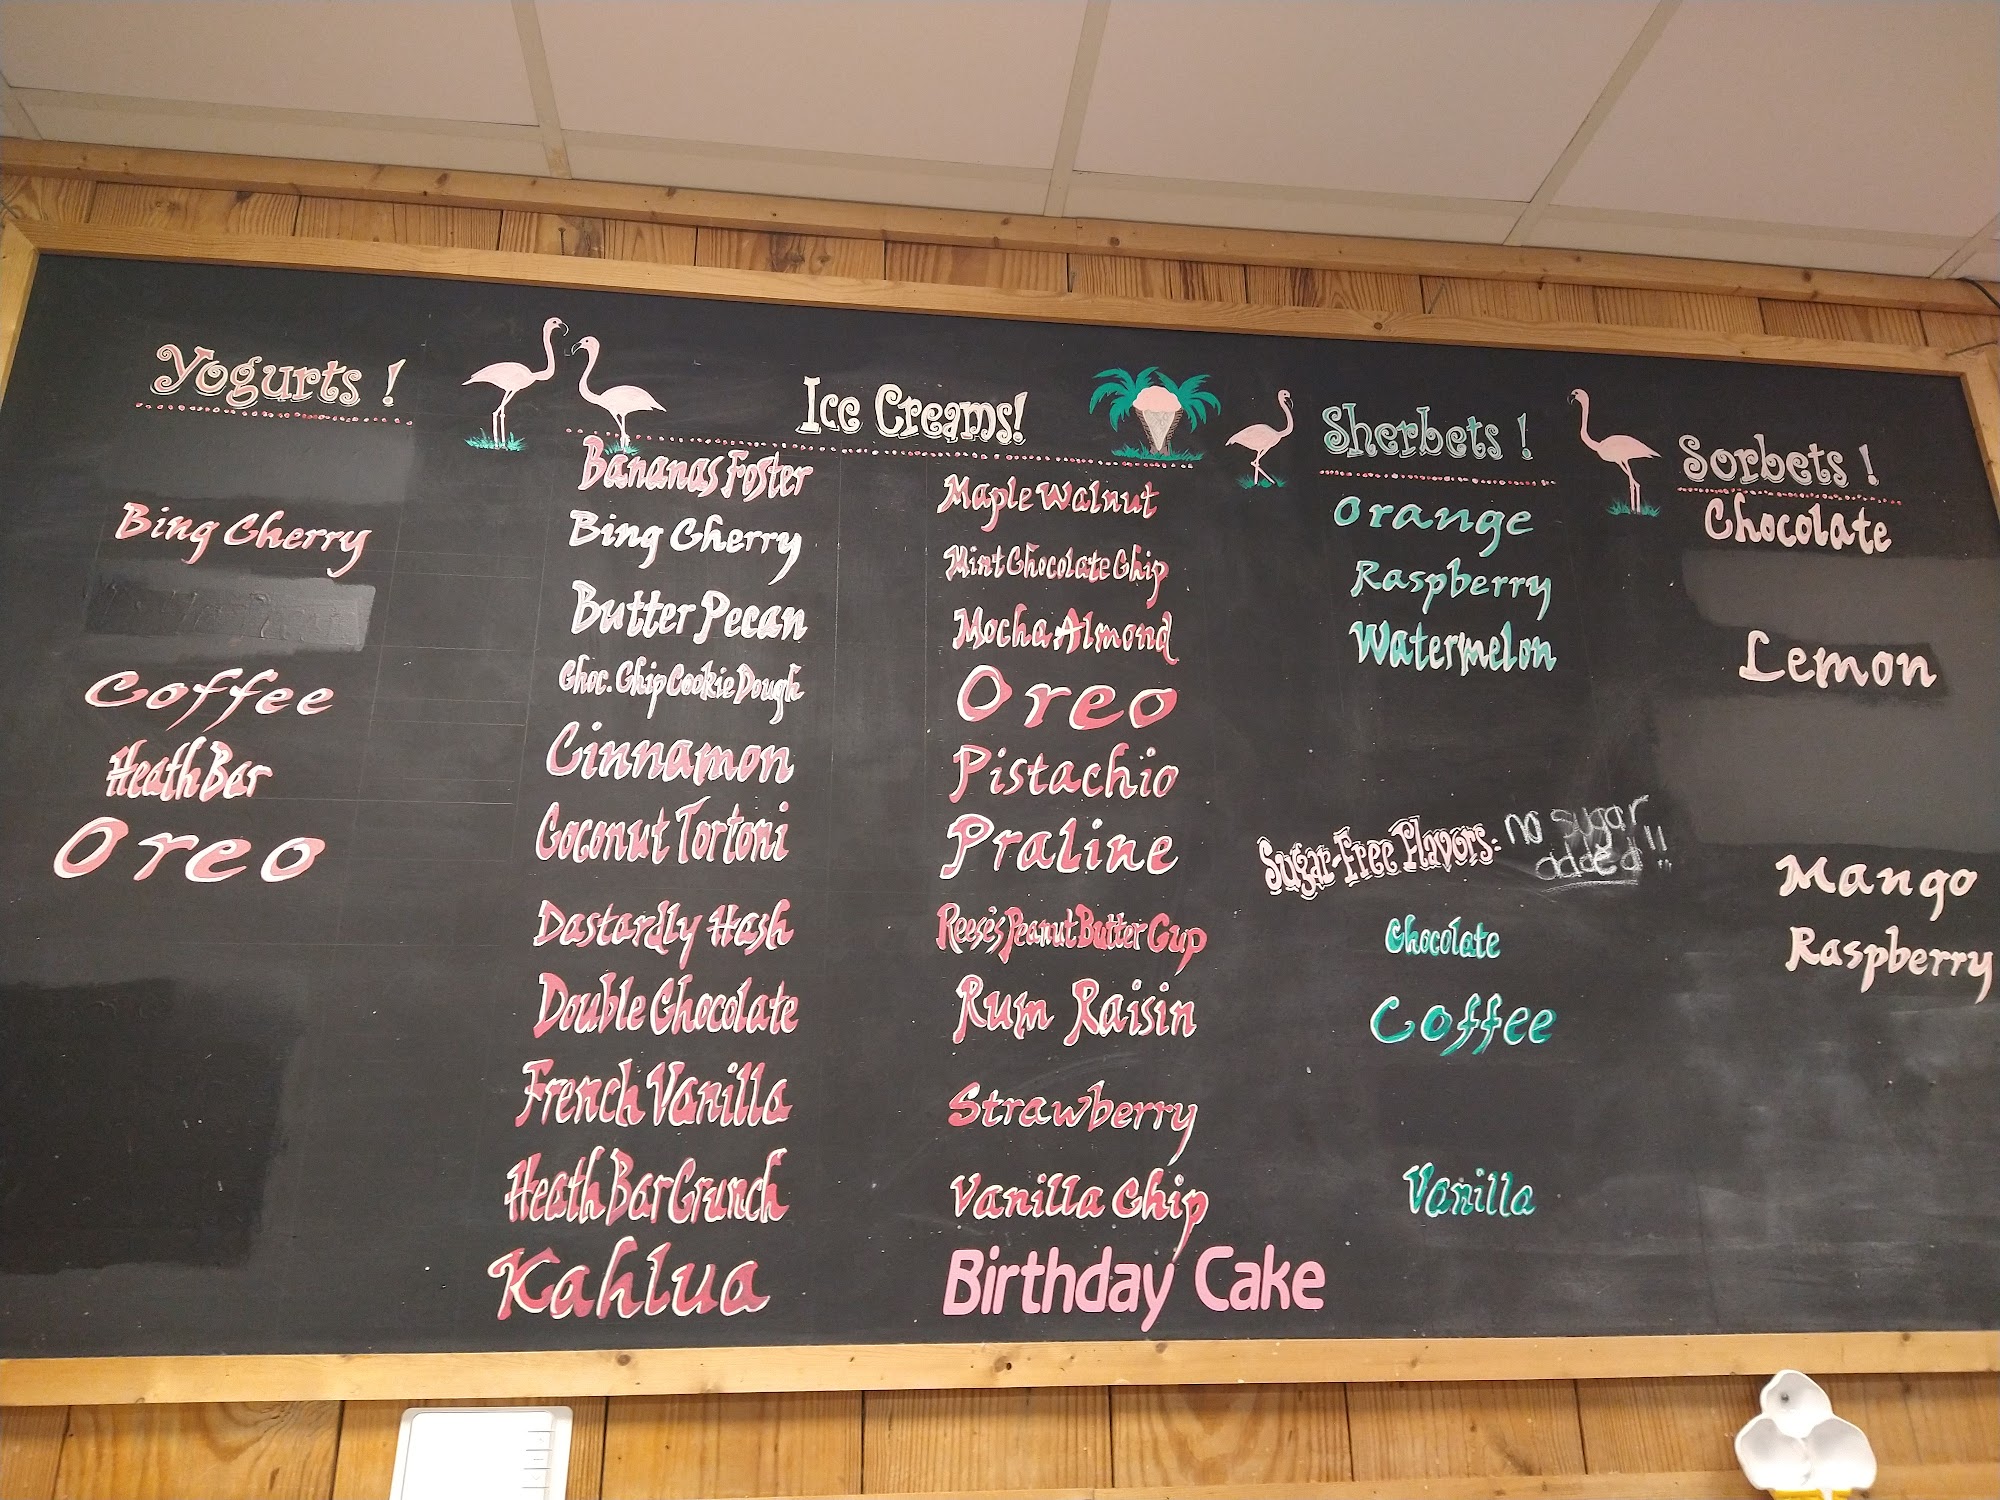 Yogurts !
Bing Cherry
Coffee
Heath Bar
Oreo
Ice Creams!
Bananas Foster
Bing Cherry
Butter Pecan
Choc. Chip Cookie Dough
Cinnamon
Coconut Tortoni
Dastardly Hash
Double Chocolate
French Vanilla
Heath Bar Crunch
Kahlua
Maple Walnut
Mint Chocolate Chip
Mocha Almond
Oreo
Pistachio
Praline
Reese's Peanut Butter Cup
Rum Raisin
Strawberry
Vanilla Chip
Birthday Cake
Sherbets !
Orange
Raspberry
Watermelon
Sugar-Free Flavors: no sugar
added!!
Chocolate
Coffee
Vanilla
Sorbets !
Chocolate
Lemon
Mango
Raspberry